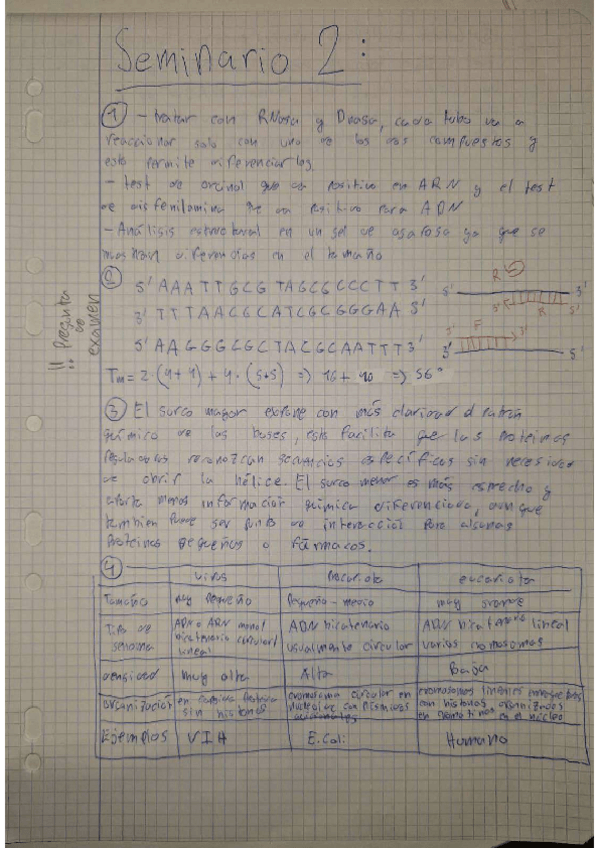 Seminario 2:
① - tratar con RNasa y Dnasa, cada tubo va a
reaccionar solo con uno de los dos compuestos y
esto permite diferenciarlos.
- test de orcinol que da positivo en ARN y el test
de difenilamina que da positivo para ADN
- Análisis estructural en un gel de agarosa ya que se
mostran diferencias en el tamaño
!! Pregunta
de
examen
②
5' AAATTGCGTAGCGCCCTT 3'
3' TTTAACGCATCGCGGGAA 5'
5' AAGGGCGCTACGCAATTT 3'
Tm = 2·(4+4) + 4·(5+5) => 16 + 40 => 56°
R
5' 3'
3' 5'
R
5' F 3'
3' 5'
③ El surco mayor expone con más claridad el patrón
químico de las bases, esto facilita que las proteínas
reguladoras reconozcan secuencias específicas sin necesidad
de abrir la hélice. El surco menor es más estrecho y
aporta menos información química diferenciada, aunque
tambien puede ser punto de interacción para algunas
proteínas pequeñas o fármacos.
④
virus procariota eucariota
Tamaño muy pequeño Pequeño - medio muy grande
Tipo de genoma ADN o ARN mono/ bicatenario circular/ lineal ADN bicatenario usualmente circular ADN bicatenario lineal varios cromosomas
densidad muy alta Alta Baja
organización en capsida proteica sin histonas cromosoma circular en nucleoide con plasmidos adicionales cromosomas lineales con histonas, organizados en cromatina en el núcleo
Ejemplos VIH E.Coli Humano